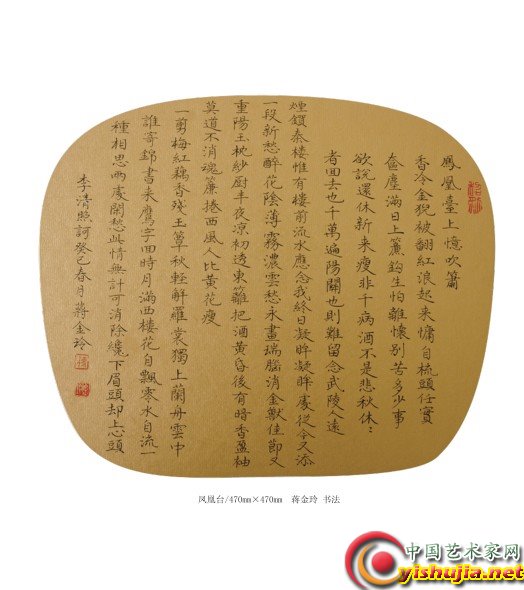 鳳凰臺上憶吹簫
香冷金猊被翻紅浪起来慵自梳頭任寶
奩塵滿日上簾鈎生怕離懷別苦多少事
欲說還休新来瘦非干病酒不是悲秋休〻
者回去也千萬遍陽關也則難留念武陵人遠
煙鎖秦樓惟有樓前流水應念我終日凝眸凝眸處從今又添
一段新愁醉花陰薄霧濃雲愁永晝瑞腦消金獸佳節又
重陽玉枕紗厨半夜凉初透東籬把酒黄昏後有暗香盈袖
莫道不消魂簾捲西風人比黄花瘦
一剪梅紅藕香殘玉簟秋輕解羅裳獨上蘭舟雲中
誰寄錦書来鴈字回時月滿西樓花自飄零水自流一
種相思兩處閑愁此情無計可消除纔下眉頭却上心頭
李清照詞癸巳春月蔣金玲
凤凰台/470mm×470mm 蒋金玲 书法
中国艺术家网
yishujia.net